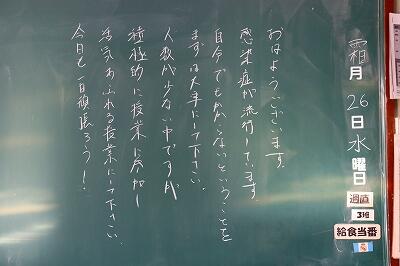 霜月26日水曜日
週直
3班
給食当番
おはようございます。
感染症が流行しています。
自分でもかからないということを
まずは大事にして下さい。
人数が少ない中ですが
積極的に授業に参加し
活気あふれる授業にして下さい。
今日も一日頑張ろう！